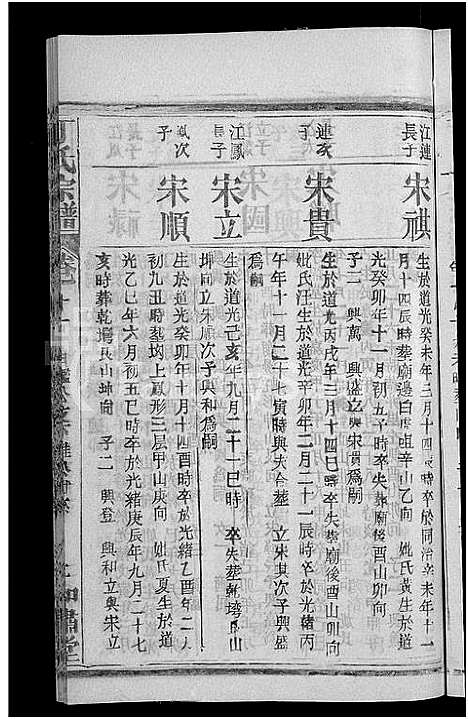 江連長子
宋祺
生於道光癸未年三月十四
時卒於同治辛未年十一
月十四辰時葬廟邊白虎
辛山乙向 妣氏黃生於道
光癸卯年十一月初五子時卒失葬廟後酉山卯向
子二 興萬 興盛立與宋貴爲嗣
連次子
宋貴
生於道光丙戌年三月十四巳時卒失葬廟後酉山卯向
妣氏汪生於道光癸卯年二月二十一辰時卒於光緒丙
午年十一月二十七寅時與夫合葬 立宋其次子興盛
爲嗣
江鳳長子
宋立
生於道光己亥年九月二十一巳時 卒失葬乾塆艮山
坤向立宋順次子興和爲嗣
鳳次子
宋順
生於道光癸卯年十月十四酉時卒於光緒乙酉年二月
初九丑時葬均上鳳形三层甲山庚向 妣氏夏生於道
光乙巳年六月初五巳時卒於光緒庚辰年九月二十七
亥時葬乾塆艮山坤向 子二 興登 興和立與宋立
丁氏宗譜
卷二十一